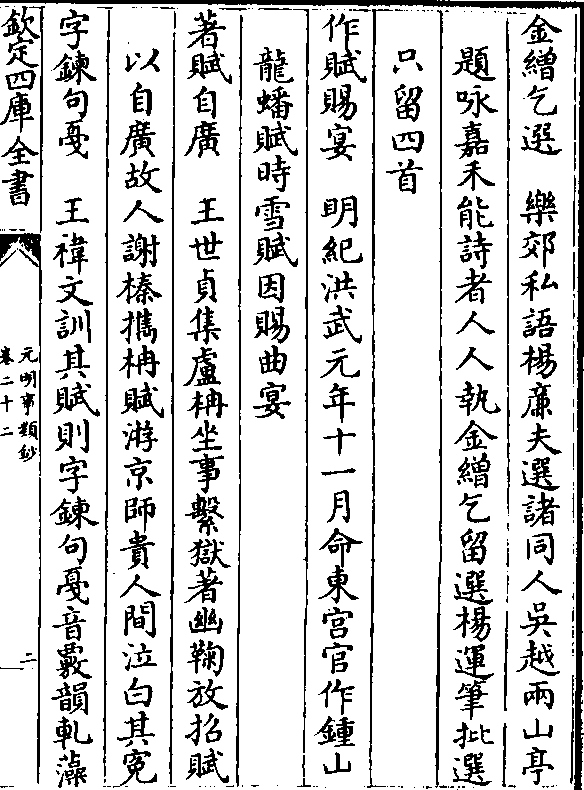 金繒乞選　樂郊私語楊廉夫選諸同人吳越兩山亭
題咏嘉禾能詩者人人執金繒乞留選楊運筆批選
只留四首
作賦賜宴　明紀洪武元年十一月命東宮官作鍾山
龍蟠賦時雪賦因賜曲宴
著賦自廣　王世貞集盧柟坐事繫獄著幽鞠放招賦
以自廣故人謝榛攜柟賦游京師貴人間泣白其寃
字鍊句戞　王禕文訓其賦則字鍊句戞音覈韻軋藻
欽定四庫全書
元明事類鈔
卷二十二
二